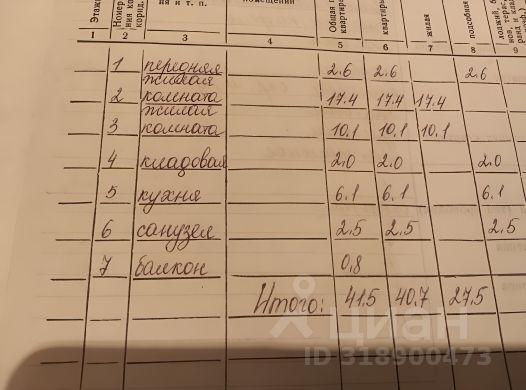 Этаж
Номер
ния и т. п.
помещений
Общая п
квартиры
квартиры
жилая
подсобная
1 2 3 4 5 6 7 8 9
1 передняя 2.6 2.6 2.6
жилая
2 комната 17.4 17.4 17.4
жилая
3 комната 10.1 10.1 10.1
4 кладовая 2.0 2.0 2.0
5 кухня 6.1 6.1 6.1
6 санузел 2.5 2.5 2.5
7 балкон 0.8
Итого: 41.5 40.7 27.5
ЦИАН
ID 318900473